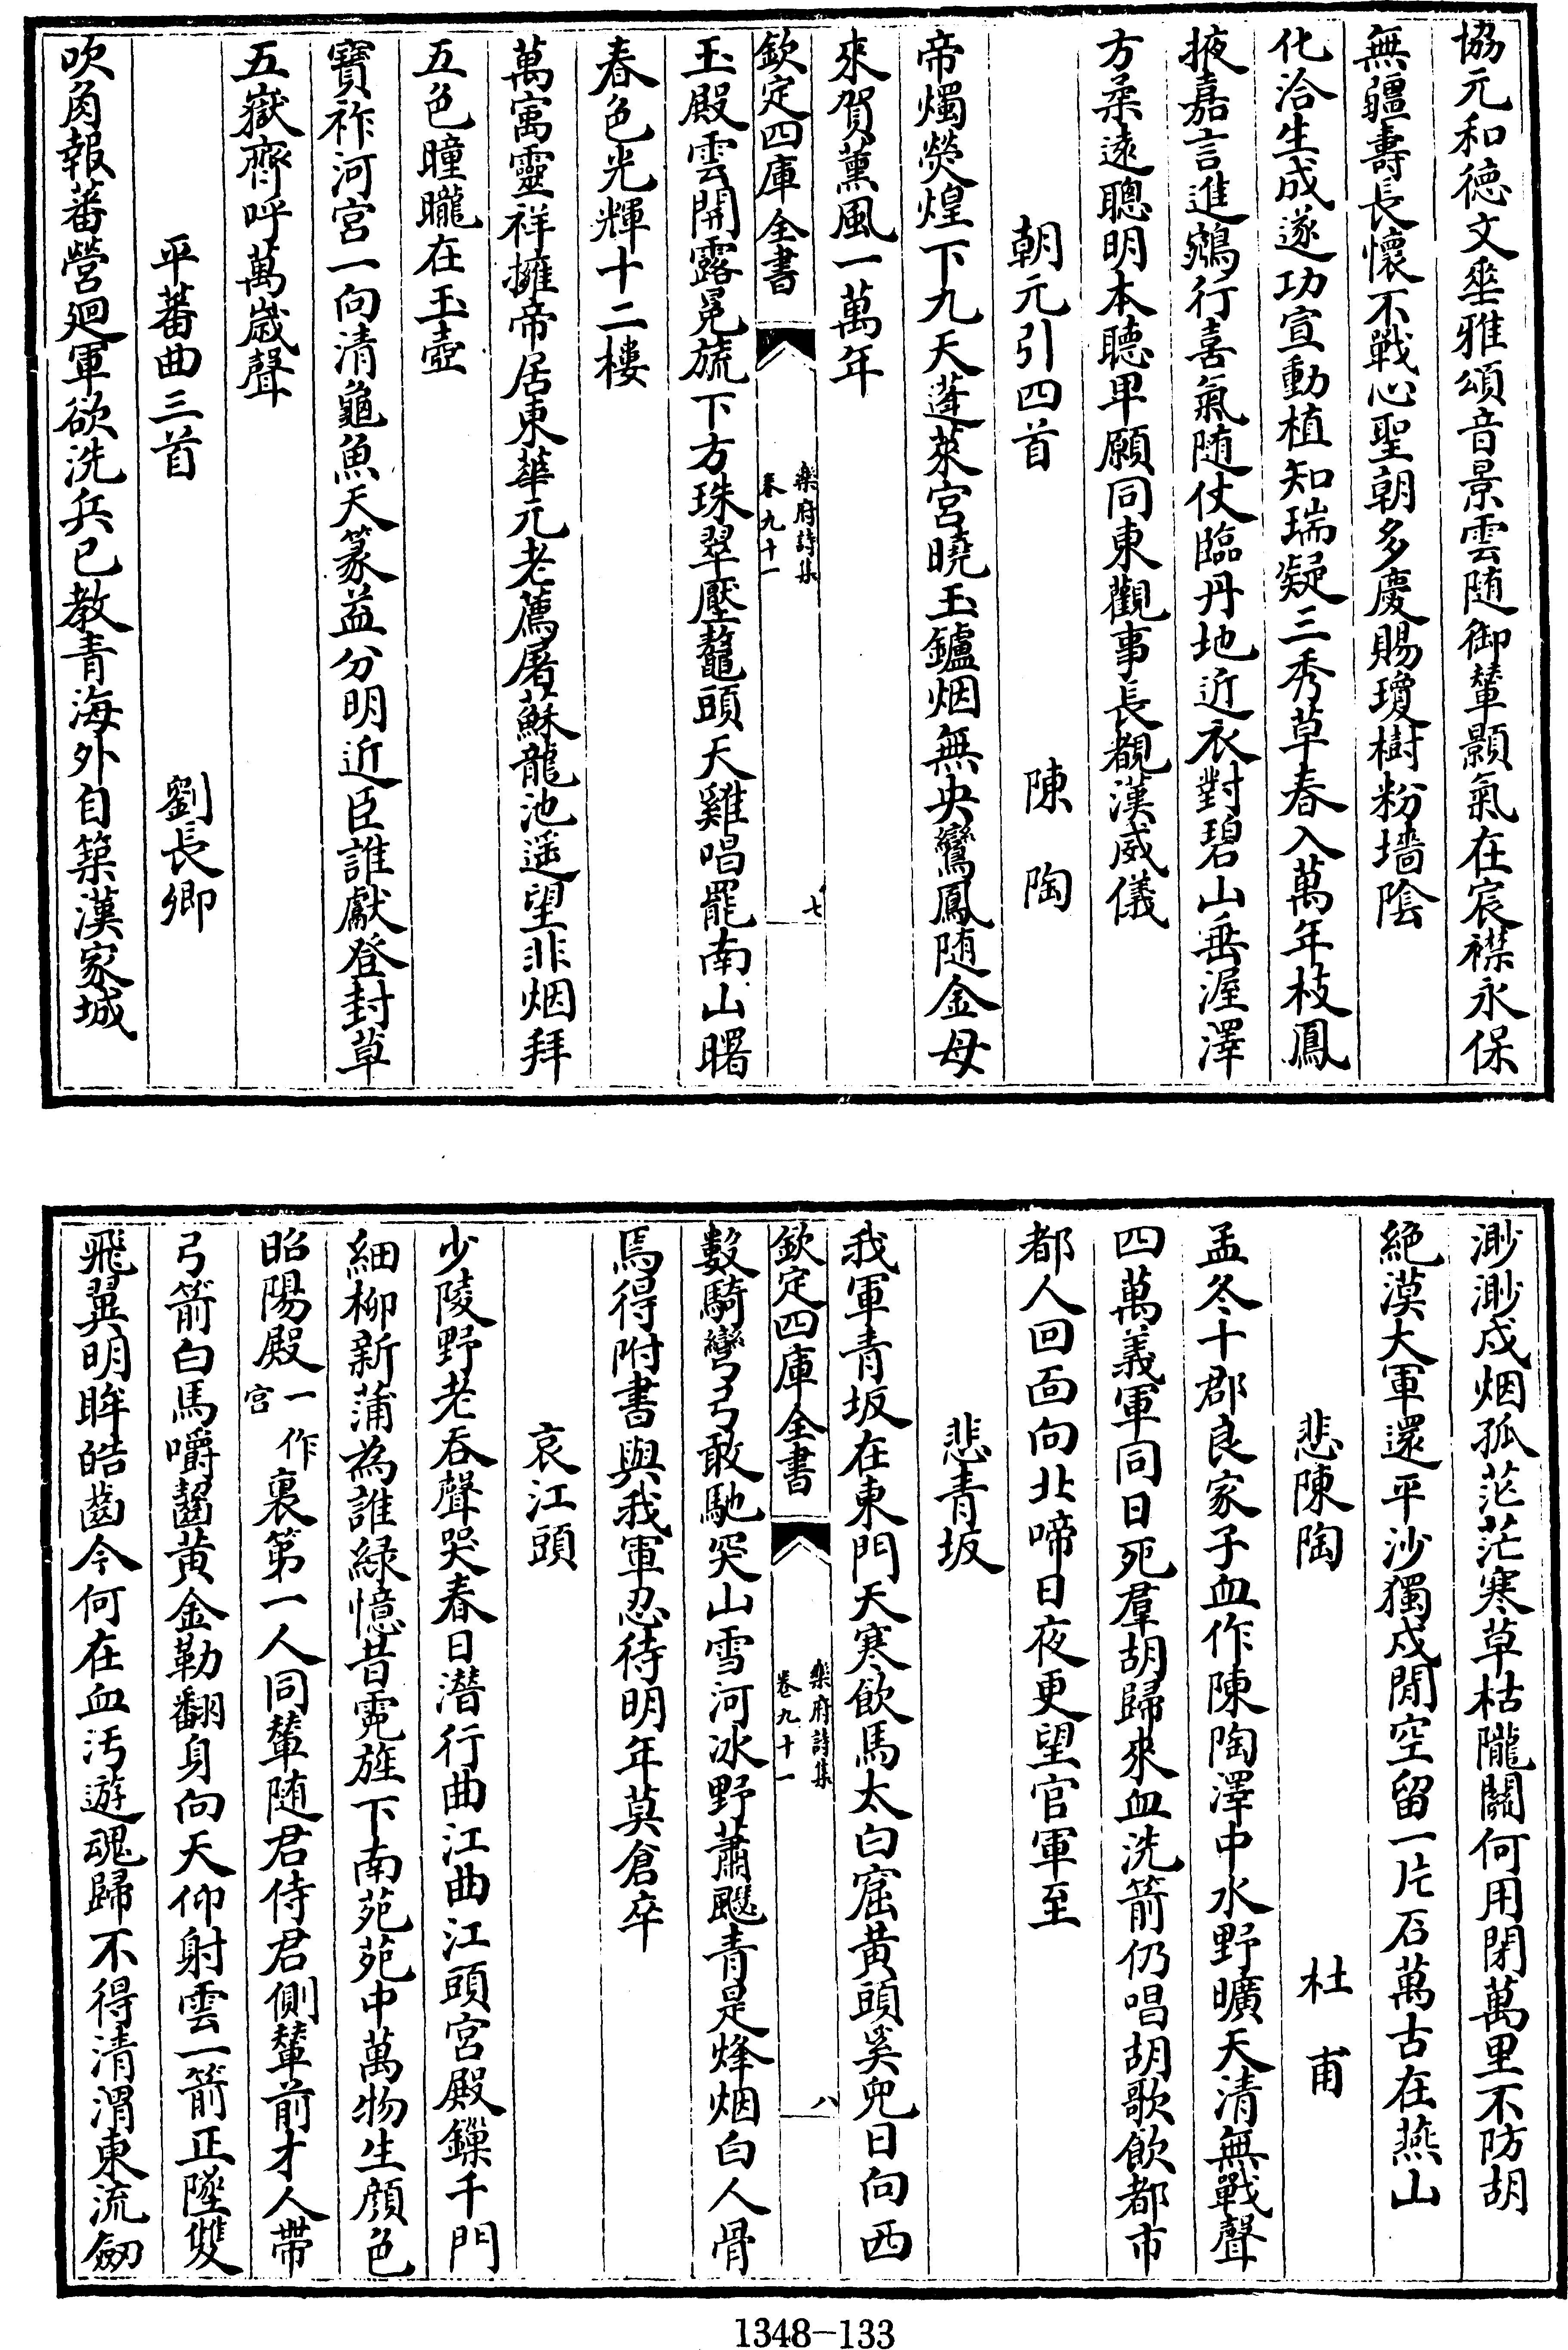 協元和徳文垂雅頌音景雲随御輦顥氣在宸襟永保
無疆壽長懷不戰心聖朝多慶賜瓊樹粉墻隂
化洽生成遂功宣動植知瑞凝三秀草春入萬年枝鳳
掖嘉言進鵷行喜氣随仗臨丹地近衣對碧山垂渥澤
方柔遠聰明本聽卑願同東觀事長覩漢威儀
朝元引四首　陳陶
帝燭熒煌下九天蓬萊宮曉玉鑪烟無央鸞鳳随金母
來賀薰風一萬年
欽定四庫全書　樂府詩集　卷九十一　七
玉殿雲開露冕旒下方珠翠壓鼇頭天雞唱罷南山曙
春色光輝十二樓
萬寓靈祥擁帝居東華元老薦屠蘇龍池遥望非烟拜
五色曈曨在玉壺
寶祚河宮一向清龜魚天篆益分明近臣誰獻登封草
五嶽齊呼萬嵗聲
平蕃曲三首　劉長卿
吹角報蕃營廻軍欲洗兵已教青海外自築漢家城
渺渺戍烟孤茫茫寒草枯隴關何用閉萬里不防胡
絶漠大軍還平沙獨戍閒空留一片石萬古在燕山
悲陳陶　杜甫
孟冬十郡良家子血作陳陶澤中水野曠天清無戰聲
四萬義軍同日死羣胡歸來血洗箭仍唱胡歌飲都市
都人回面向北啼日夜更望官軍至
悲青坂
我軍青坂在東門天寒飲馬太白窟黄頭奚兒日向西
欽定四庫全書　樂府詩集　卷九十一　八
數騎彎弓敢馳突山雪河冰野蕭颷青是烽烟白人骨
焉得附書與我軍忍待明年莫倉卒
哀江頭
少陵野老吞聲哭春日潜行曲江曲江頭宮殿鏁千門
細柳新蒲為誰緑憶昔霓旌下南苑苑中萬物生顔色
昭陽殿一作宮裏第一人同輦随君侍君側輦前才人帶
弓箭白馬嚼齧黄金勒翻身向天仰射雲一箭正墜雙
飛翼明眸皓齒今何在血汚遊魂歸不得清渭東流劒
1348-133